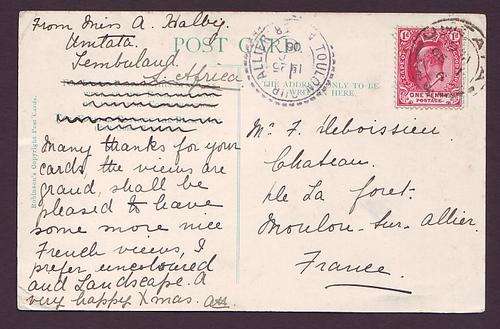 From Miss A. Halby.
Umtata.
Tembuland.
S. Africa
POST CARD
THE ADDRESS ONLY TO BE
HERE.
Robinson's Copyright Post Cards.
Many thanks for your
cards, the views are
grand, shall be
pleased to have
some more nice
French views, I
prefer uncoloured
and Landscape. A
very happy Xmas. AH.
ONE PENNY
POSTAGE
Mr F. Deboissieu
Chateau.
de La foret.
Moulon-sur-Allier.
France.